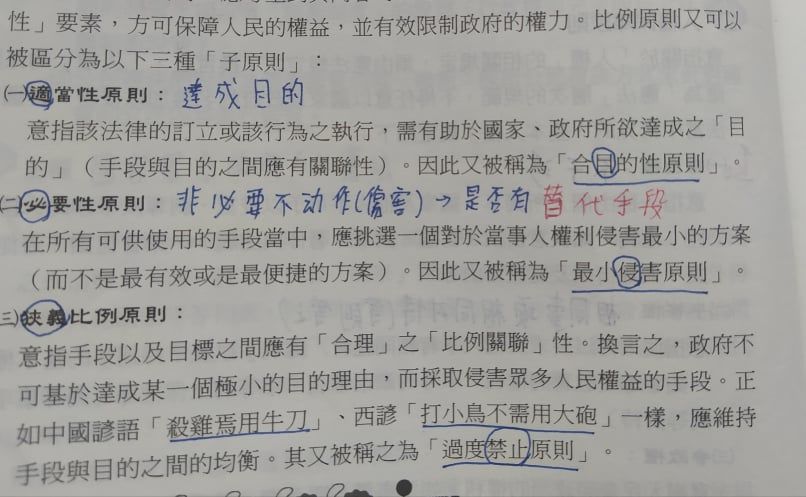 性」要素，方可保障人民的權益，並有效限制政府的權力。比例原則又可以
被區分為以下三種「子原則」：
㈠適當性原則： 達成目的
意指該法律的訂立或該行為之執行，需有助於國家、政府所欲達成之「目
的」（手段與目的之間應有關聯性）。因此又被稱為「合目的性原則」。
㈡必要性原則： 非必要不动作(傷害)→是否有替代手段
在所有可供使用的手段當中，應挑選一個對於當事人權利侵害最小的方案
（而不是最有效或是最便捷的方案）。因此又被稱為「最小侵害原則」。
㈢狹義比例原則：
意指手段以及目標之間應有「合理」之「比例關聯」性。換言之，政府不
可基於達成某一個極小的目的理由，而採取侵害眾多人民權益的手段。正
如中國諺語「殺雞焉用牛刀」、西諺「打小鳥不需用大砲」一樣，應維持
手段與目的之間的均衡。其又被稱之為「過度禁止原則」。